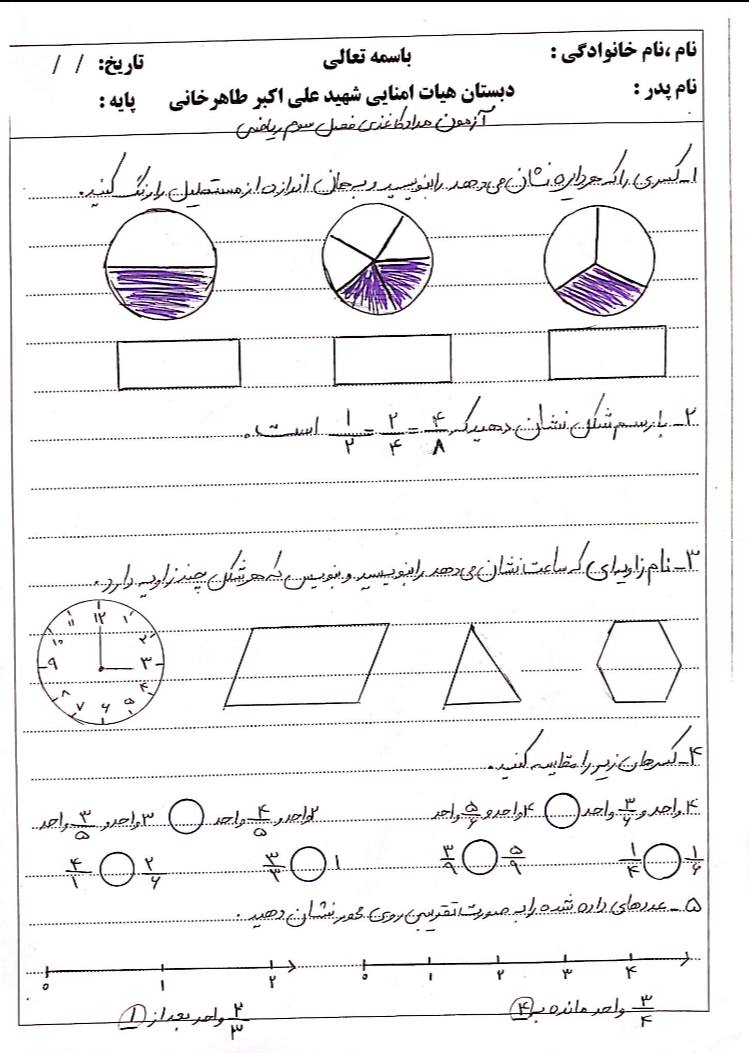 نام ،نام خانوادگی : باسمه تعالی تاریخ: / /
نام پدر : دبستان هیات امنایی شهید علی اکبر طاهرخانی پایه :
آزمون مدادکاغذی فصل سوم ریاضی
۱_کسری را که هر دایره نشان می دهد را بنویسید و به همان اندازه از مستطیل را رنگ کنید.
۲_ با رسم شکل نشان دهید که ۴/۸ = ۲/۴ = ۱/۲ است.
۳_ نام زاویه ای که ساعت نشان می دهد را بنویسید و بنویس که هر شکل چند زاویه دارد.
۱۲ ۱ ۲ ۳ ۴ ۵ ۶ ۷ ۸ ۹ ۱۰ ۱۱
۴_ کسرهای زیر را مقایسه کنید.
۴ واحد و ۳/۶ واحد ○ ۴ واحد و ۵/۶ واحد ۲ واحد و ۴/۵ واحد ○ ۳ واحد و ۳/۵ واحد
۱/۶ ○ ۱/۴ ۵/۹ ○ ۳/۹ ۱ ○ ۳/۳ ۲/۶ ○ ۴/۱
۵_ عددهای داده شده را به صورت تقریبی روی محور نشان دهید .
۰ ۱ ۲ ۰ ۱ ۲ ۳ ۴
۳/۴ واحد مانده به ۴ ۲/۳ واحد بعد از ۱